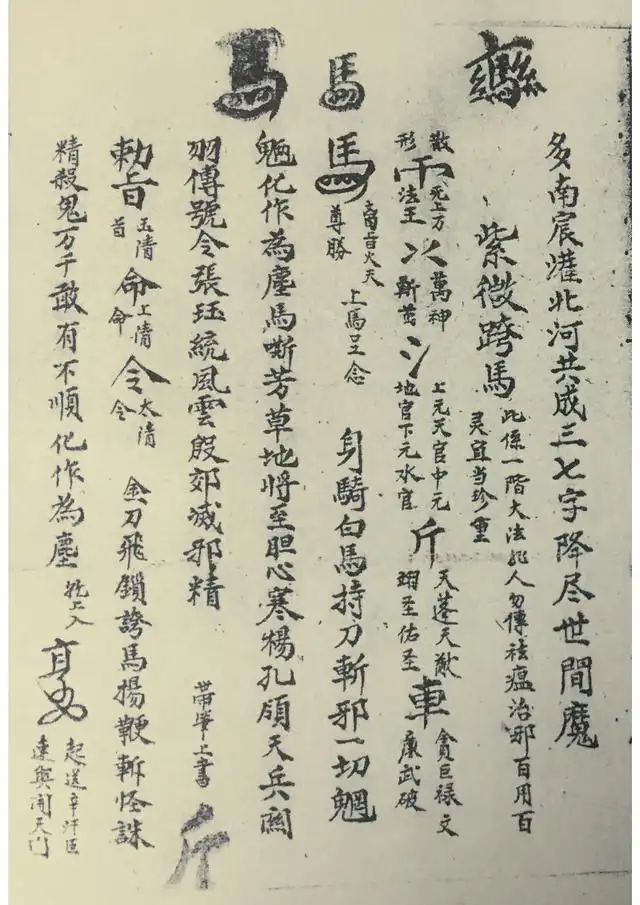 馬 馬
多南宸灌北河共成三七字降尽世間魔
紫微跨馬
此係一階大法非人勿傳祛瘟治邪百用百
灵宜当珍重
散形 上方法王 萬神 上元天官中元地官下元水官 斤 天蓬天猷翊圣佑圣 車 貪巨禄文廉武破
馬 火天尊勝 上馬 念 身騎白馬持刀斬邪一切魍
魎化作為塵馬嘶芳草地將至胆心寒楊孔頎天兵關
羽傳號令張珏統風雲殷郊滅邪精 帶筆上書 斤
勅旨 玉清旨 命 上清命 令 太清令 金刀飛鎖誇馬揚鞭斬怪誅
精殺鬼万千敢有不順化作為塵 起送辛汗臣速與開天門